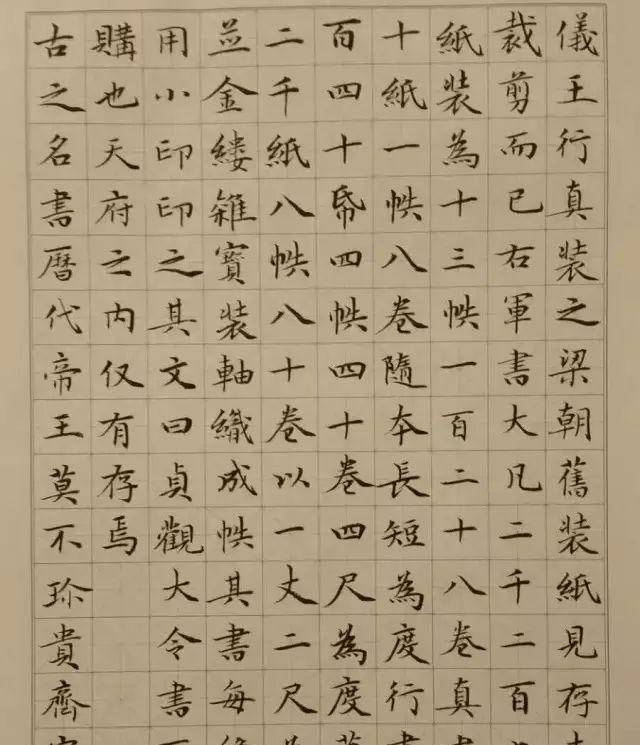 儀王行真裝之梁朝舊裝紙見存
裁剪而已右軍書大凡二千二百
紙裝為十三帙一百二十八卷真
十紙一帙八卷隨本長短為度行
百四十帋四帙四十卷四尺為度
二千紙八帙八十卷以一丈二尺
並金縷雜寶裝軸織成帙其書每
用小印印之其文曰貞觀大令書
購也天府之內仅有存焉
古之名書曆代帝王莫不珍貴齊